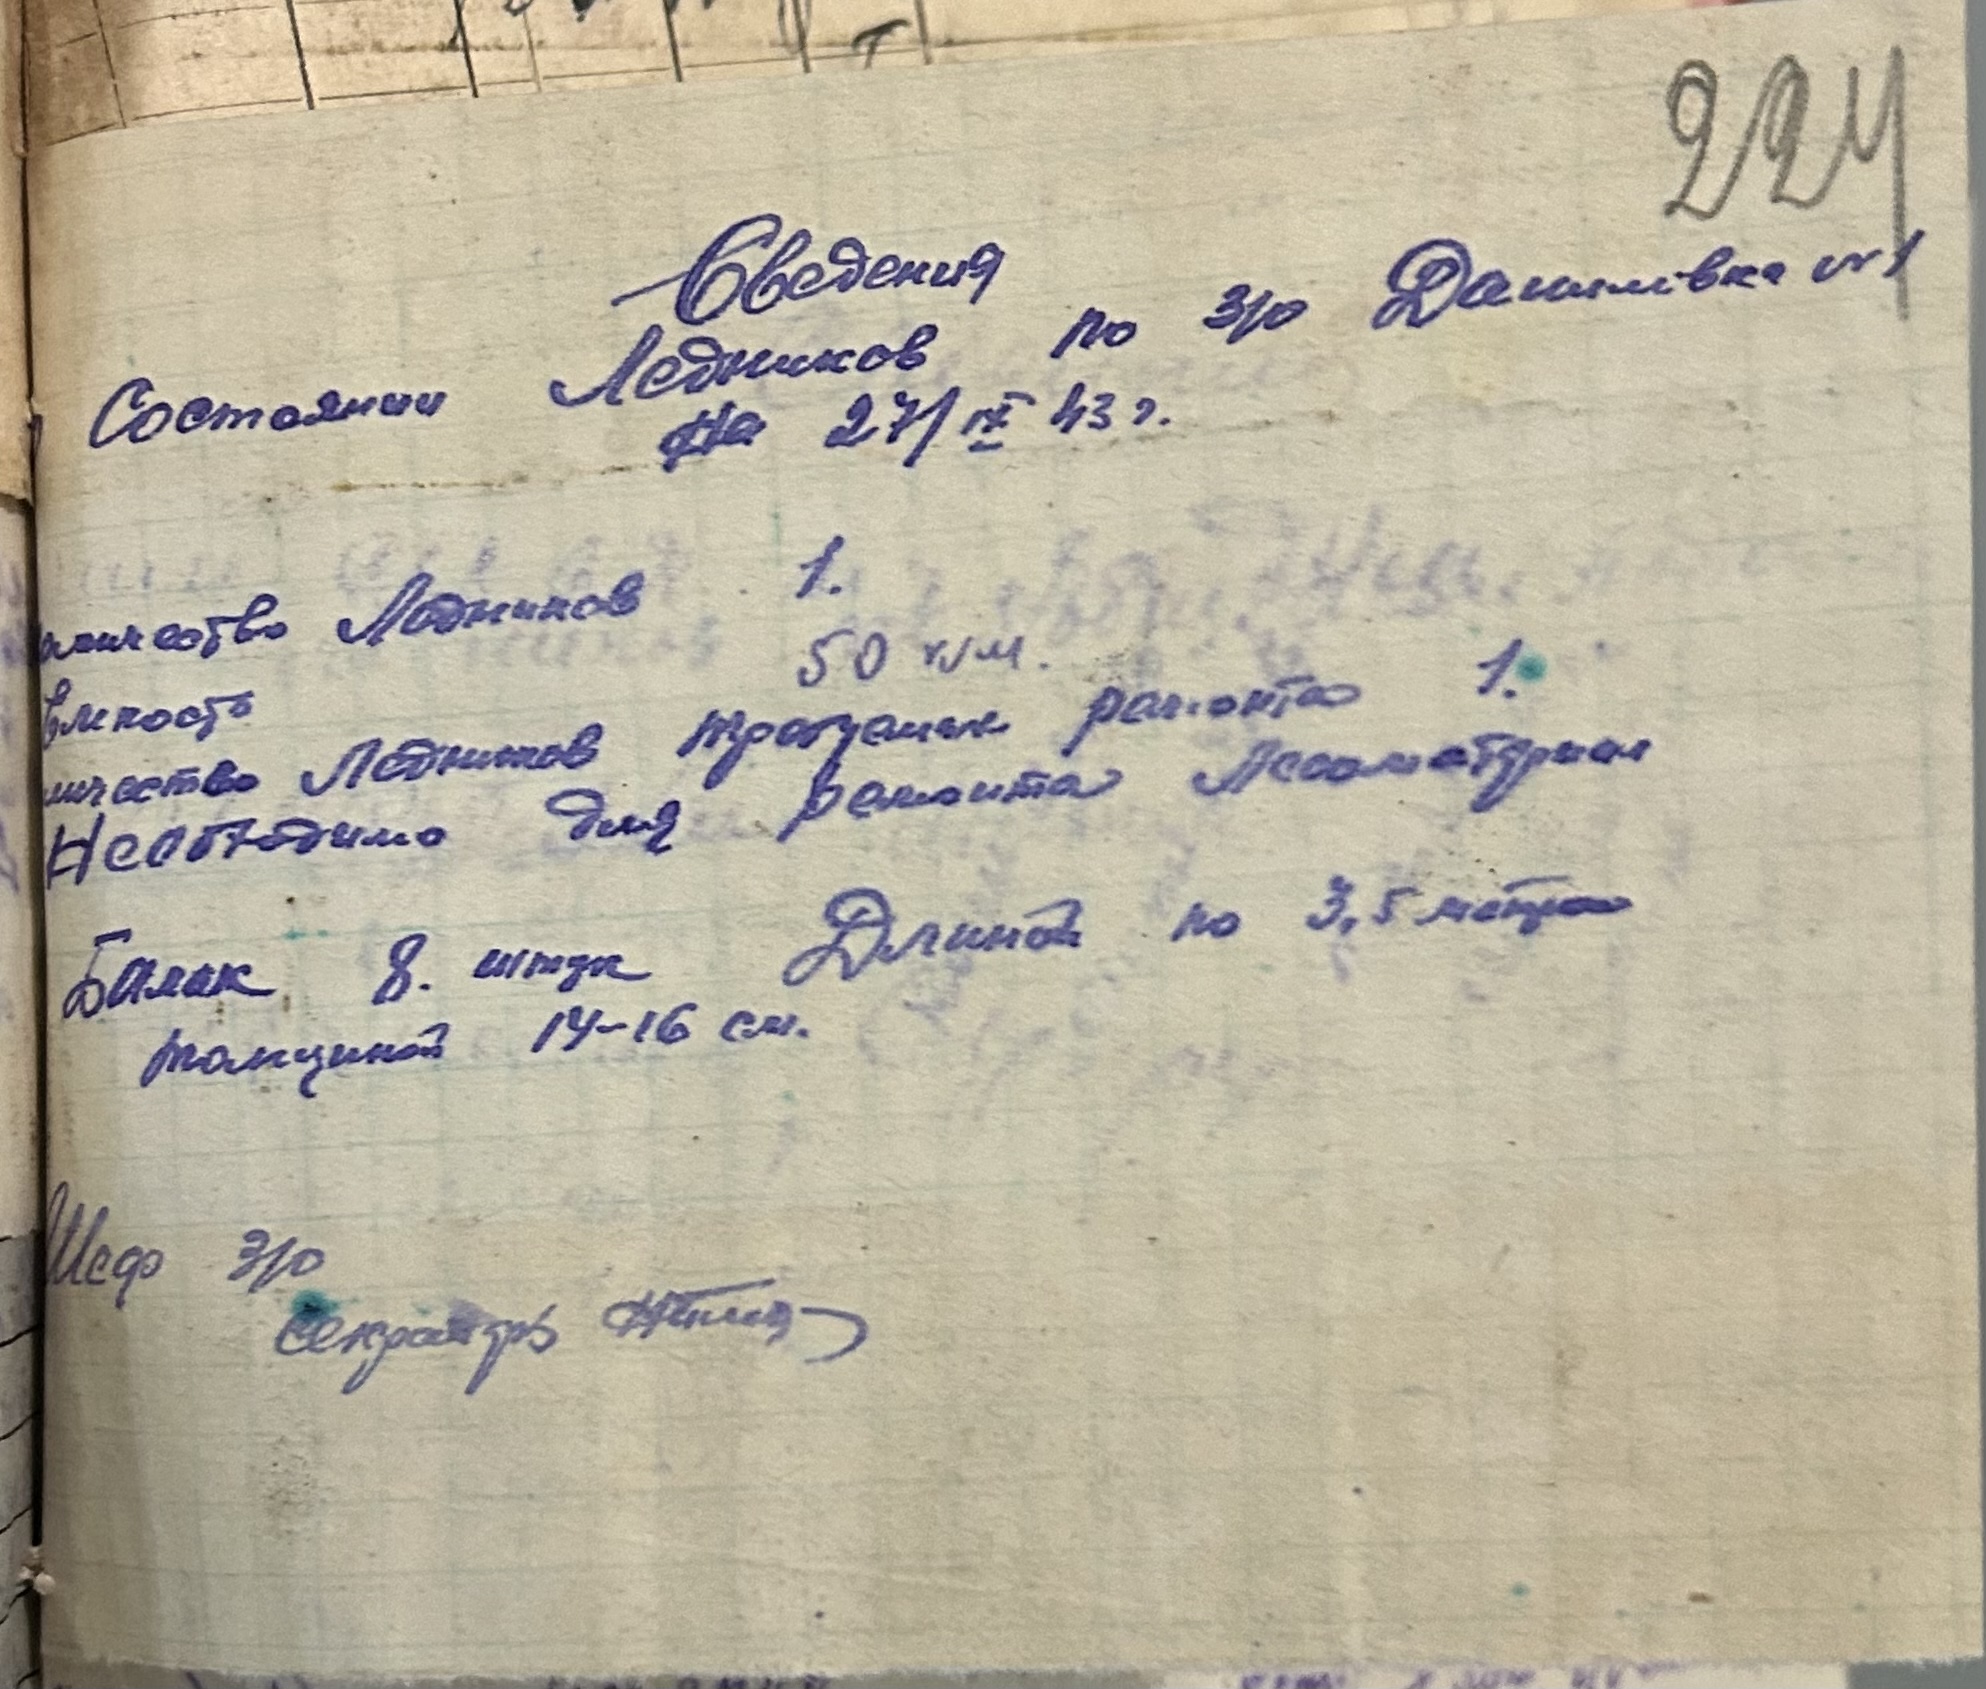 224
Сведения
Состоянии Ледников по з/о Даниловка №1
на 27/IX 43 г.
оличество Ледников 1.
Емкость 50 к/м.
ичество Ледников требуемых ремонта 1.
Необходимо для ремонта Лесоматерьял
Балак 8. штук Длиной по 3,5 метра
толщиной 14-16 см.
Шеф з/о
секратарь